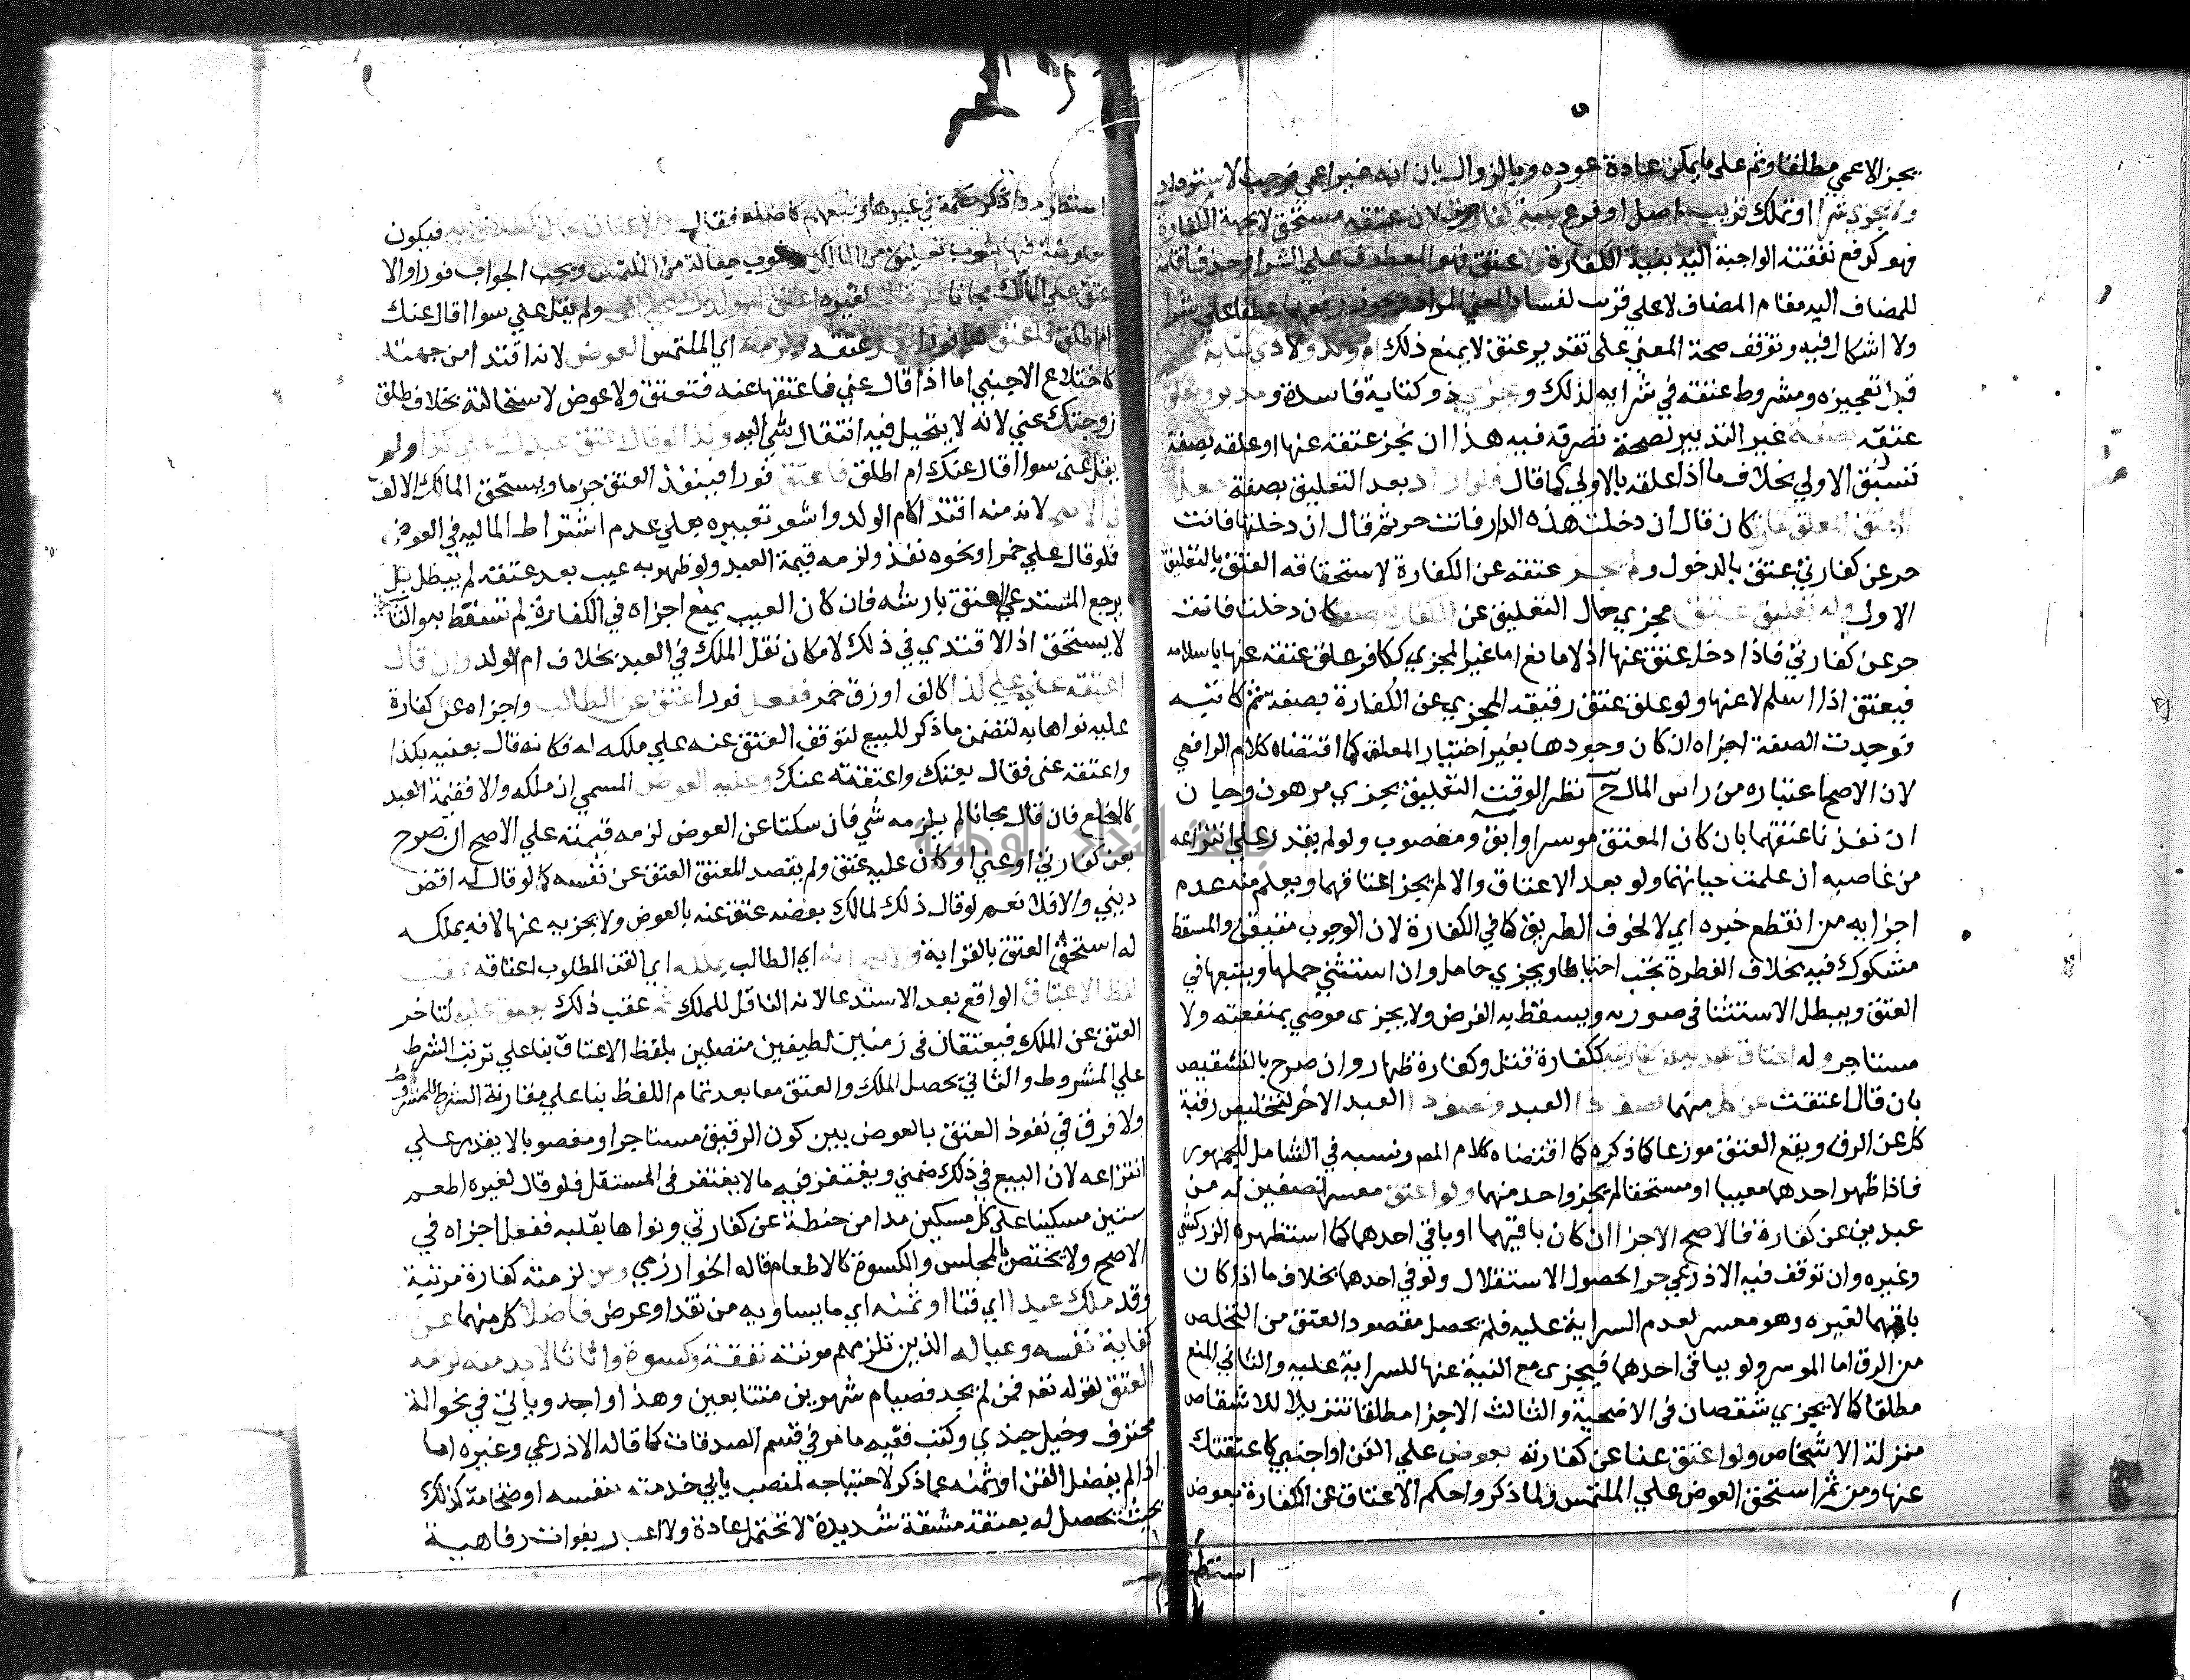 يجز الاعمي مطلقا وثم علي ما يمكن عادة عوده وبالزوال بان انه غير اعمي فوجب الاسترداد
ولا يجزي شرا او تملك قريب اصل او فرع بنية كفارة لان عتقه مستحق لا بجهة الكفارة
فهو كدفع نفقته الواجبة اليه بنية الكفارة ولا عتق فهو المعطوف علي الشرا وحذف اقامة
للمضاف اليه مقام المضاف لا علي قريب لفساد المعني المراد ويجوز رفعهما عطفا علي شرا
ولا اشكال فيه وتوقف صحة المعني علي تقدير عتق لا يمنع ذلك ام ولد ولا ذي كتابة
قبل تعجيزه ومشروط عتقه في شرايه لذلك ويجزي ذو كتابة فاسدة ومدبر ومعلق
عتقه بصفة غير التدبير لصحة تصرفه فيه هذا ان نجز عتقه عنها او علقه بصفة
تسبق الاولي بخلاف ما اذا علقه بالاولي كما قال فلو اراد بعد التعليق بصفة جعل
العتق المعلق كان قال ان دخلت هذه الدار فانت حر ثم قال ان دخلتها فانت
حر عن كفارتي عتق بالدخول ولم يجز عتقه عن الكفارة لاستحقاقه العتق بالتعليق
الاول وله تعليق عتق مجزي حال التعليق عن الكفارة بصفة كان دخلت فانت
حر عن كفارتي فاذا دخل عتق عنها اذ لا مانع اما غير المجزي ككافر علق عتقه عنها باسلامه
فيعتق اذا اسلم لا عنها ولو علق عتق رقيقه المجزي عن الكفارة بصفة ثم كاتبه
فوجدت الصفة اجزاه ان كان وجودها بغير اختيار المعلق كما اقتضاه كلام الرافعي
لان الاصح اعتباره من راس المال ح نظر الوقت التعليق يجزي مرهون وجان
ان نفذنا عتقهما بان كان المعتق موسرا وابق ومغصوب ولو لم يقدر علي انتزاعه
من غاصبه ان علمت حياتهما ولو بعد الاعتاق والا لم يجز اعتاقهما ويعلم منه عدم
اجزايه من انقطع خبره اي لا لخوف الطريق كما في الكفارة لان الوجوب متيقن والمسقط
مشكوك فيه بخلاف الفطرة تجب احتياطا ويجزي حامل وان استثني حملها ويتبعها في
العتق ويبطل الاستثنا في صورته ويسقط به الفرض ولا يجزي موصي بمنفعته ولا
مستاجر وله اعتاق عبديه عن كفارتيه ككفارة قتل وكفارة ظهار وان صرح بالتشقيص
بان قال اعتقت عن كل منهما نصف ذا العبد ونصف ذا العبد الاخر لتخليص رقبة
كل عن الرق ويقع العتق موزعا كما ذكره كما اقتضاه كلام المص ونسبه في الشامل للجمهور
فاذا ظهر احدهما معيبا او مستحقا لم يجز واحد منهما ولو اعتق معسر نصفين له من
عبدين عن كفارة فالاصح الاجزا ان كان باقيهما او باقي احدهما كما استظهره الزركشي
وغيره وان توقف فيه الاذرعي حرا لحصول الاستقلال ولو في احدهما بخلاف ما اذا كان
باقيهما لغيره وهو معسر لعدم السراية عليه فلم يحصل مقصود العتق من التخلص
من الرق اما الموسر ولو بباقي احدهما فيجزي مع النية عنها للسراية عليه والثاني المنع
مطلقا كما لا يجزي شقصان في الاضحية والثالث الاجزا مطلقا تنزيلا للاشقاص
منزلة الاشخاص ولو اعتق عنا عن كفارته بعوض علي القن او اجنبي كاعتقتك
عنها ومن ثم استحق العوض علي الملتمس ولما ذكروا حكم الاعتاق عن الكفارة بعوض
استط
استطرد واذكر حكمه في غيرها وتبعهم كاصله فقال والاعتاق بمال كطلاق به فيكون
معاوضة فيها شوب تعليق من المالك وشوب جعالة من الملتمس ويجب الجواب فورا والا
عتق علي المالك مجانا فلو قال لغيره اعتق ام ولدك علي الف ولم يقل عني سوا اقال عنك
ام اطلق فاعتق ها فورا نفذ عتقه ولزمه اي الملتمس العوض لانه افتدا من جهته
كاختلاع الاجنبي اما اذا قال عني فاعتقها عنه فتعتق ولا عوض لاستحالته بخلاف طلق
زوجتك عني لانه لا يتخيل فيه انتقال شي اليه وكذا لو قال اعتق عبدك علي كذا ولم
يقل عني سوا اقال عنك ام اطلق فاعتق فورا فينفذ العتق جزما ويستحق المالك الالف
في الاصح لانه منه افتدا كام الولد واشعر تعبيره بعلي عدم اشتراط المالية في العوض
فلو قال علي خمر او نحوه نفذ ولزمه قيمة العبد ولو ظهر به عيب بعد عتقه لم يبطل بل
يرجع المستدعي العتق بارشه فان كان العيب يمنع اجزاه في الكفارة لم تسقط به والثاني
لا يستحق اذ الافتدي في ذلك لامكان نقل الملك في العبد بخلاف ام الولد وان قال
اعتقه عني علي كذا كالف او زق خمر ففعل فورا عتق عن الطالب واجزاه عن كفارة
عليه نواها به لتضمن ما ذكر للبيع لتوقف العتق عنه علي ملكه له فكانه قال بعنيه بكذا
واعتقه عني فقال بعتك واعتقته عنك وعليه العوض المسمي ان ملكه والا فقيمة العبد
كالخلع فان قال مجانا لم يلزمه شي فان سكتا عن العوض لزمه قيمته علي الاصح ان صرح
بعن كفارتي او عني او كان عليه عتق ولم يقصد المعتق العتق عن نفسه كما لو قال له اقض
ديني والا فلا نعم لو قال ذلك لمالك بعضه عتق عنه بالعوض ولا يجزيه عنها لانه يملكه
له استحق العتق بالقرابة والاصح انه اي الطالب يملكه اي القن المطلوب اعتاقه عقب
لفظ الاعتاق الواقع بعد الاستدعا لانه الناقل للملك ثم عقب ذلك يعتق عليه لتاخر
العتق عن الملك فيعتقان في زمنين لطيفين متصلين بلفظ الاعتاق بنا علي ترتب الشرط
علي المشروط والثاني يحصل الملك والعتق معا بعد تمام اللفظ بنا علي مقارنة الشرط للمشروط
ولا فرق في نفوذ العتق بالعوض بين كون الرقيق مستاجرا او مغصوبا لا يقدر علي
انتزاعه لان البيع في ذلك ضمني ويغتفر فيه ما لا يغتفر في المستقل فلو قال لغيره اطعم
ستين مسكينا علي كل مسكين مدا من حنطة عن كفارتي ونواها بقلبه ففعل اجزاه في
الاصح ولا يختص بالمجلس والكسوة كالاطعام قاله الخوارزمي ومن لزمته كفارة مرتبة
وقد ملك عبدا اي قنا او ثمنه اي ما يساويه من نقد او عرض فاضلا كل منهما عن
كفاية نفسه وعياله الذين تلزمهم مونته نفقة وكسوة واثاثا لا بد منه لزمه
العتق لقوله تعه فمن لم يجد فصيام شهرين متتابعين وهذا واجد وياتي في نحو الة
محترف وخيل جندي وكتب فقيه ما مر في قسم الصدقات كما قاله الاذرعي وغيره اما
اذا لم يفضل القن او ثمنه عما ذكر لاحتياجه لمنصب يابي خدمته بنفسه او ضخامة كذلك
بحيث تحصل له بعتقه مشقة شديدة لا تحتمل عادة ولا اعتبار بفوات رفاهية